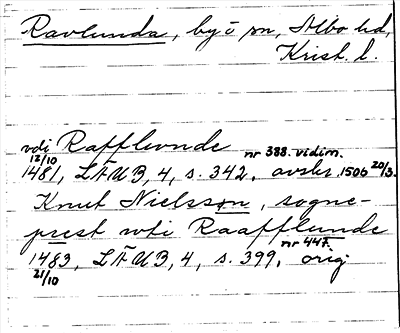 Ravlunda, by i sn, Albo hd,
Krist. l.
vdi Rafflunde
12/10 nr 388. vidim.
1481, LÄUB, 4, s. 342, avskr. 1506 20/3.
Knut Nielsson, sogne-
prest vti Raafflunde
nr 447.
1483, LÄUB, 4, s. 399, orig
21/10